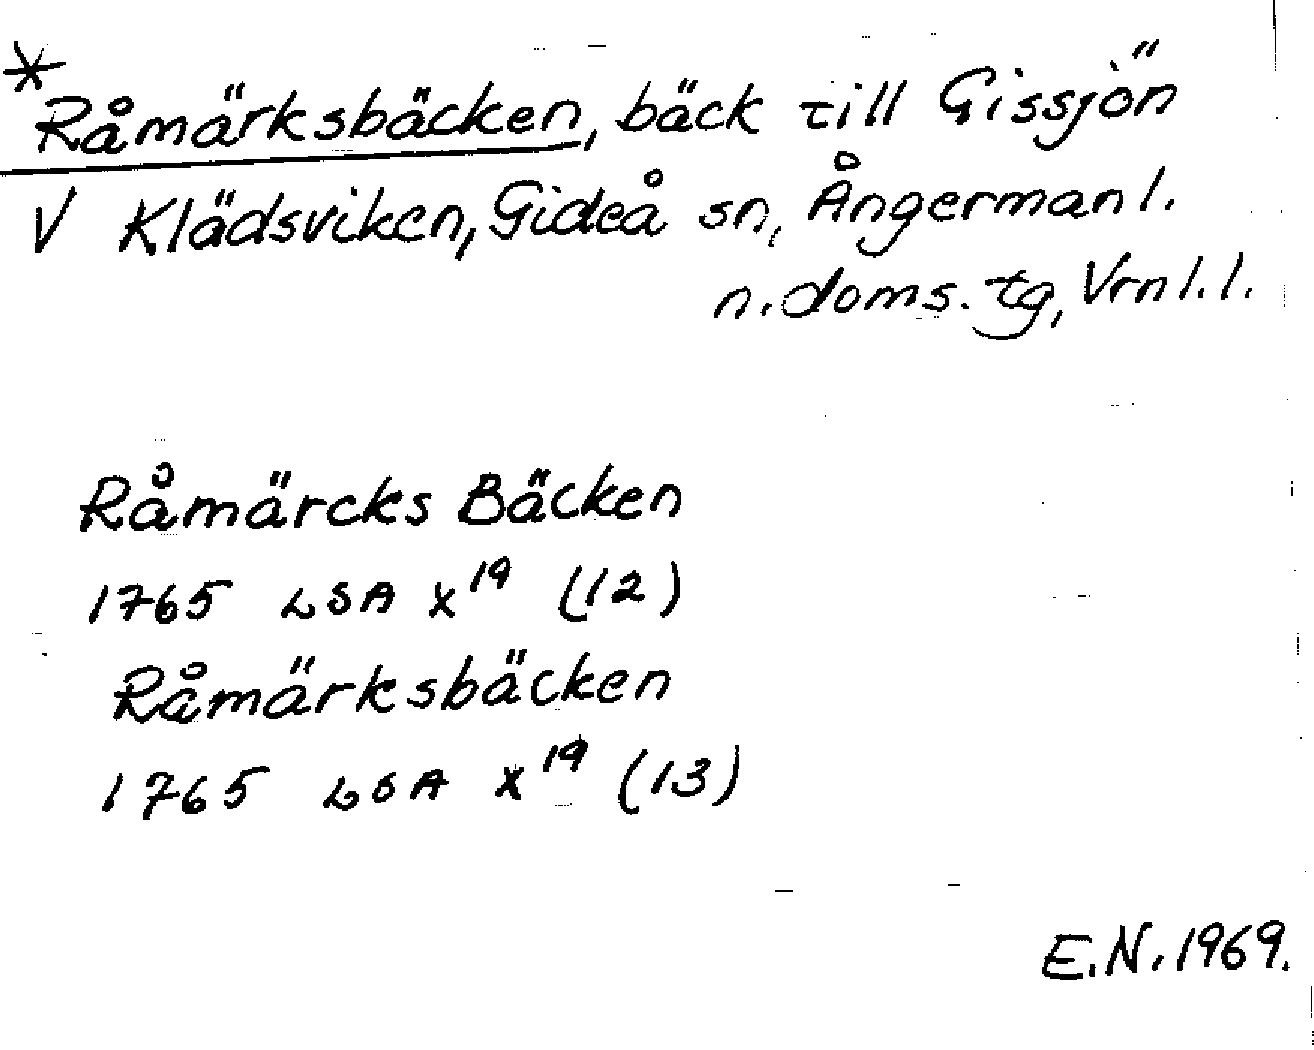 *Råmärksbäcken, bäck till Gissjön
V Klädsviken, Gideå sn, Ångermanl.
n. doms. tg, Vrnl. l.
Råmärcks Bäcken
1765 LSA X¹⁹ (12)
Råmärksbäcken
1765 LSA X¹⁹ (13)
E.N. 1969.